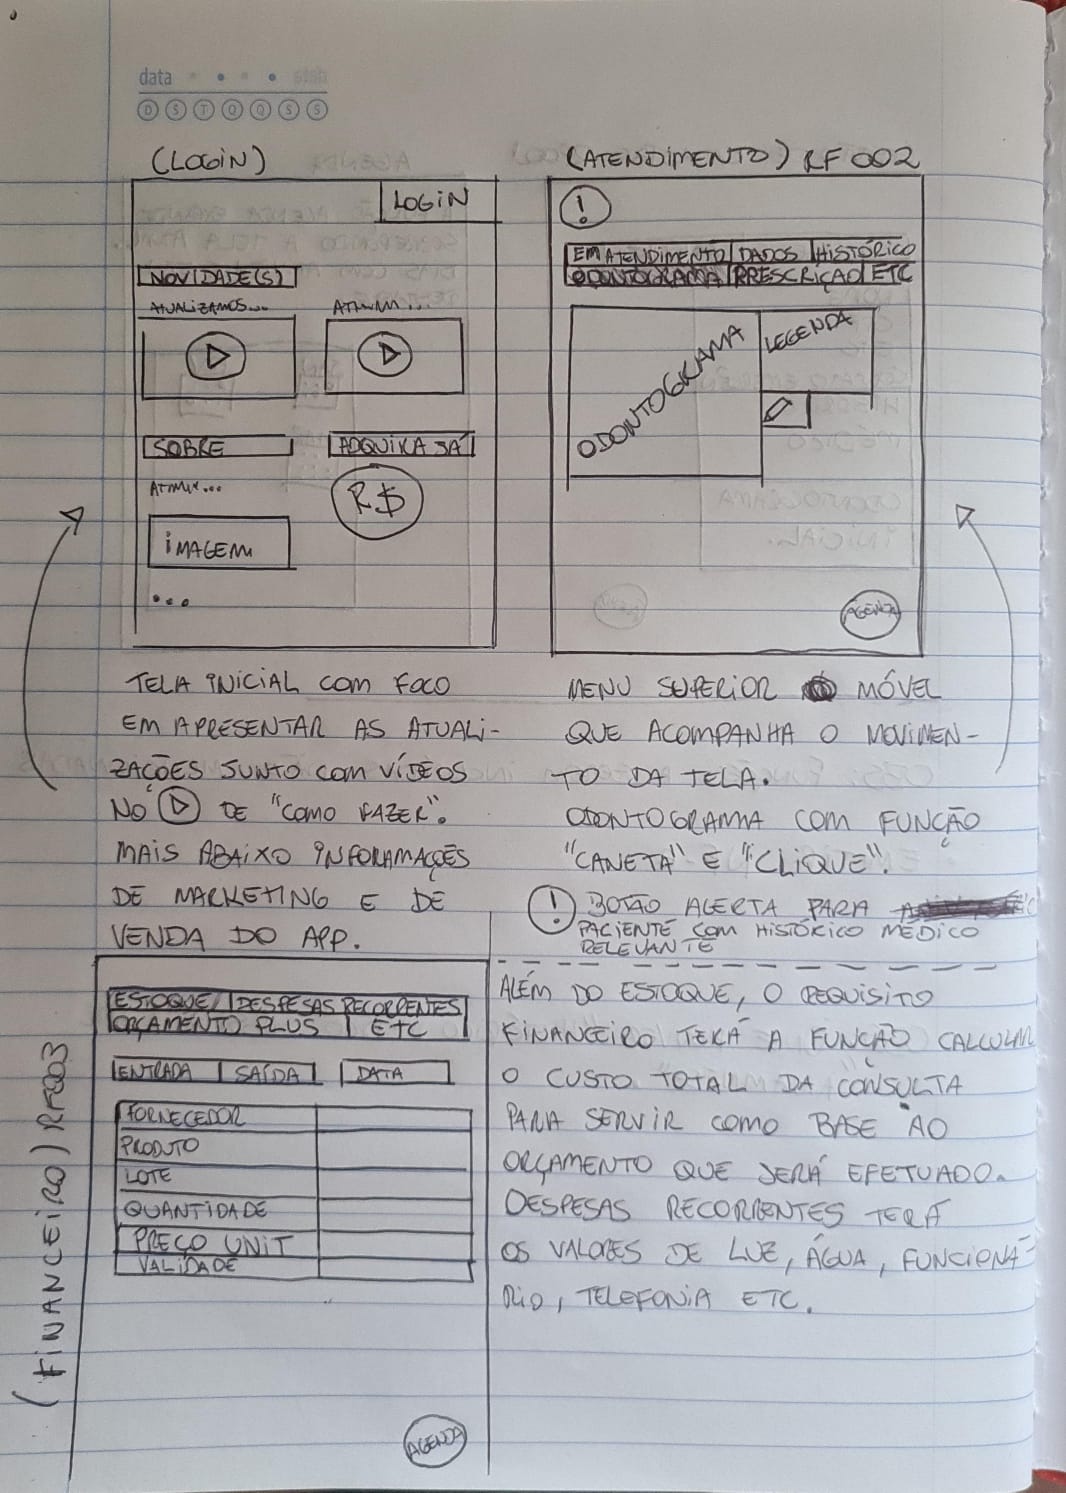 data
D S T Q Q S S
(LOGIN)
LOGIN
NOVIDADE(S)
ATUALIZAMOS...
SOBRE
ADQUIRA JÁ
R$
IMAGEM
...
TELA INICIAL COM FOCO
EM APRESENTAR AS ATUALI-
ZAÇÕES JUNTO COM VÍDEOS
NO DE "COMO FAZER".
MAIS ABAIXO INFORAMAÇÕES
DE MARKETING E DE
VENDA DO APP.
(ATENDIMENTO) RF 002
!
EM ATENDIMENTO DADOS HISTÓRICO
ODONTOGRAMA PRESCRIÇÃO ETC
ODONTOGRAMA
LEGENDA
AGENDA
MENU SUPERIOR MÓVEL
QUE ACOMPANHA O MOVIMEN-
TO DA TELA.
ODONTOGRAMA COM FUNÇÃO
"CANETA" E "CLIQUE".
! BOTÃO ALERTA PARA
PACIENTE COM HISTÓRICO MÉDICO
RELEVANTE
(FINANCEIRO) RF003
ESTOQUE DESPESAS RECORRENTES
ORÇAMENTO PLUS ETC
ENTRADA SAÍDA DATA
FORNECEDOR
PRODUTO
LOTE
QUANTIDADE
PREÇO UNIT
VALIDADE
AGENDA
ALÉM DO ESTOQUE, O REQUISITO
FINANCEIRO TERÁ A FUNÇÃO CALCULAR
O CUSTO TOTAL DA CONSULTA
PARA SERVIR COMO BASE AO
ORÇAMENTO QUE SERÁ EFETUADO.
DESPESAS RECORRENTES TERÁ
OS VALORES DE LUZ, ÁGUA, FUNCIONÁ-
RIO, TELEFONIA ETC.